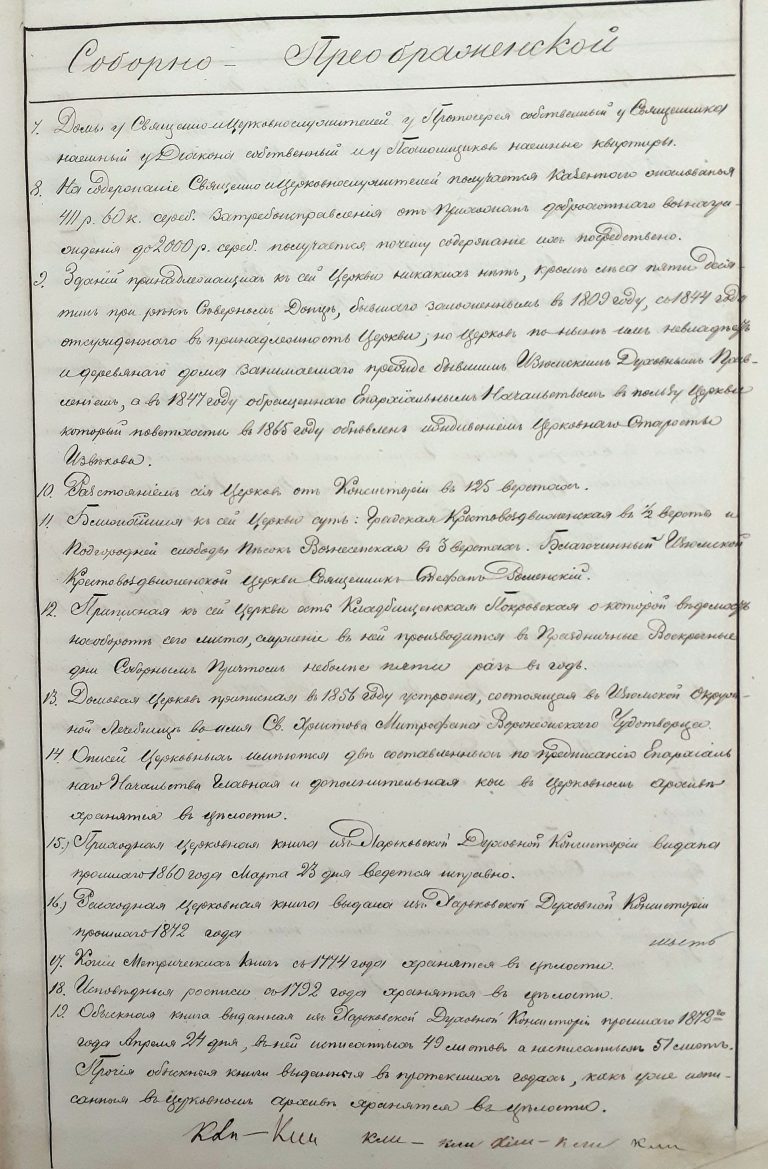 Соборно – Преображенской
7. Домы у Священно и Церковнослужителей у Протоиерея собственный у Священника
наемный у Діакона собственный и у Псаломщиковъ наемные квартиры.
8. На содержаніе Священно и Церковнослужителей получается Казеннаго жалованья
411 р. 60 к. сереб. за требоисправленія отъ Прихожанъ доброхотнаго вознагра-
жденія до 2000 р. сереб. получается почему содержаніе ихъ посредствено.
9. Зданій принадлежащихъ къ сей Церкви никакихъ нѣтъ, кромѣ лѣса пяти деся-
тинъ при рѣкѣ Сѣверномъ Донцѣ, бывшаго заложеннымъ въ 1809 году, съ 1844 года
отсужденнаго въ принадлежность Церкви; но Церковь по нынѣ имъ невладѣетъ
и деревянаго дома занимаемаго прежде бывшимъ Изюмскимъ Духовнымъ Прав-
леніемъ, а въ 1847 году обращеннаго Епархіальнымъ Начальствомъ въ пользу Церкви
который поветхости въ 1865 году обновленъ иждивеніемъ Церковнаго Старосты
Извѣкова.
10. Разстояніемъ сія Церковь отъ Консисторіи въ 125 верстахъ.
11. Ближайшія къ сей Церкви суть: Градская Крестовоздвиженская въ ½ версты и
Подгородней слободы Пѣсокъ Вознесенская въ 3 верстахъ. Благочинный Изюмской
Крестовоздвиженской Церкви Священникъ Стефанъ
12. Приписная къ сей Церкви есть Кладбищенская Покровская о которой вѣдомость
на оборотѣ сего листа, служеніе въ ней производится въ Праздничные Воскресные
дни Соборнымъ Причтомъ неболѣе пяти разъ въ годъ.
13. Домовая Церковь приписная въ 1856 году устроена, состоящая въ Изюмской окруж-
ной Лечебницѣ во имя Св. Христова Митрофана Воронежскаго Чудотворца.
14. Описей Церковныхъ имѣются двѣ составленныхъ по предписанію Епархіаль
наго Начальства Главная и дополнительная кои въ Церковномъ архивѣ
хранятся въ цѣлости.
15.) Приходная Церковная книга изъ Харьковской Духовной Консисторіи выдана
прошлаго 1860 года Марта 23 дня ведется исправно.
16.) Расходная Церковная книга выдана изъ Харьковской Духовной Консисторіи
прошлаго 1872 года
17. Копіи Метрическихъ книгъ съ 1774 года хранятся въ цѣлости.
18. Исповѣдныя росписи съ 1792 года хранятся въ цѣлости.
19. Обыскная книга выданная изъ Харьковской Духовной Консисторіи прошлаго 1872го
года Апреля 24 дня, въ ней исписанныхъ 49 листовъ а неисписанныхъ 51 листъ.
Прочія обыскныя книги выданныя въ протекшихъ годахъ, какъ уже испи-
санныя въ Церковномъ архивѣ хранятся въ цѣлости.